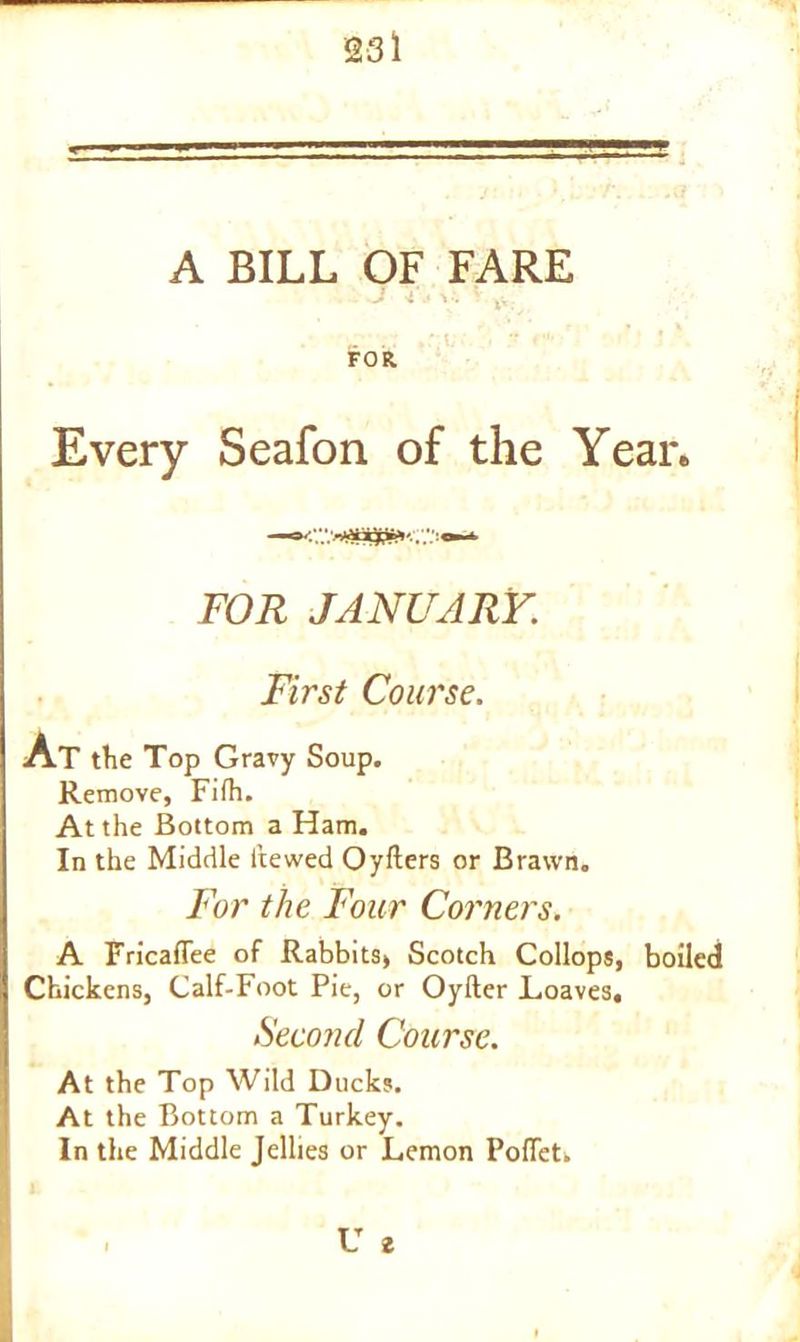 231
A BILL OF FARE
FOR
Every Seaſon of the Year.
FOR JANUARY.
First Course.
AT the Top Gravy Soup.
Remove, Fiſh.
At the Bottom a Ham.
In the Middle ſtewed Oyſters or Brawn.
For the Four Corners.
A Fricaſſee of Rabbits, Scotch Collops, boiled
Chickens, Calf-Foot Pie, or Oyſter Loaves.
Second Course.
At the Top Wild Ducks.
At the Bottom a Turkey.
In the Middle Jellies or Lemon Poſſet.
U 2